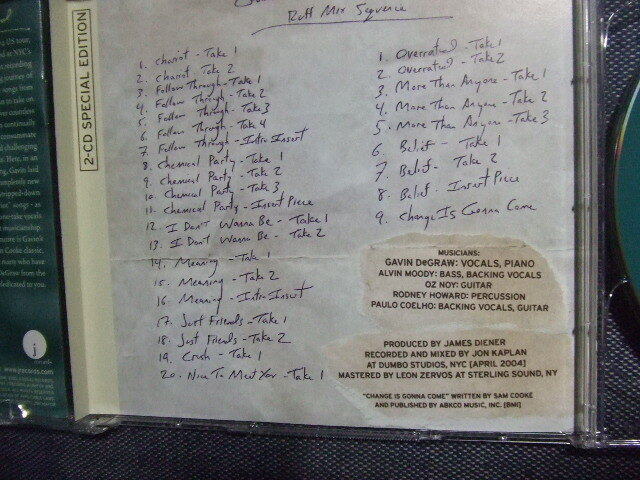 Ruff Mix Sequence
2-CD SPECIAL EDITION
1. Chariot - Take 1
2. Chariot Take 2
3. Follow Through - Take 1
4. Follow Through - Take 2
5. Follow Through - Take 3
6. Follow Through - Take 4
7. Follow Through - Intro Insert
8. Chemical Party - Take 1
9. Chemical Party - Take 2
10. Chemical Party - Take 3
11. Chemical Party - Insert Piece
12. I Don't Wanna Be - Take 1
13. I Don't Wanna Be - Take 2
14. Meaning - Take 1
15. Meaning - Take 2
16. Meaning - Intro Insert
17. Just Friends - Take 1
18. Just Friends - Take 2
19. Crush - Take 1
20. Nice To Meet You - Take 1
1. Overrated - Take 1
2. Overrated - Take 2
3. More Than Anyone - Take 1
4. More Than Anyone - Take 2
5. More Than Anyone - Take 3
6. Belief - Take 1
7. Belief - Take 2
8. Belief - Insert Piece
9. Change Is Gonna Come
MUSICIANS:
GAVIN DeGRAW: VOCALS, PIANO
ALVIN MOODY: BASS, BACKING VOCALS
OZ NOY: GUITAR
RODNEY HOWARD: PERCUSSION
PAULO COELHO: BACKING VOCALS, GUITAR
PRODUCED BY JAMES DIENER
RECORDED AND MIXED BY JON KAPLAN
AT DUMBO STUDIOS, NYC [APRIL 2004]
MASTERED BY LEON ZERVOS AT STERLING SOUND, NY
"CHANGE IS GONNA COME" WRITTEN BY SAM COOKE
AND PUBLISHED BY ABKCO MUSIC, INC. [BMI]
US tour
NYC's
recording
journey of
songs from
to take on
over countries
continually
consummate
and challenging
Here, in an
Gavin laid
completely new
stripped-down
songs - as
one-take vocals
musicianship.
more is Gavin's
Cooke classic.
fans who have
DeGraw from the
dedicated to you.
j
www.jrecords.com